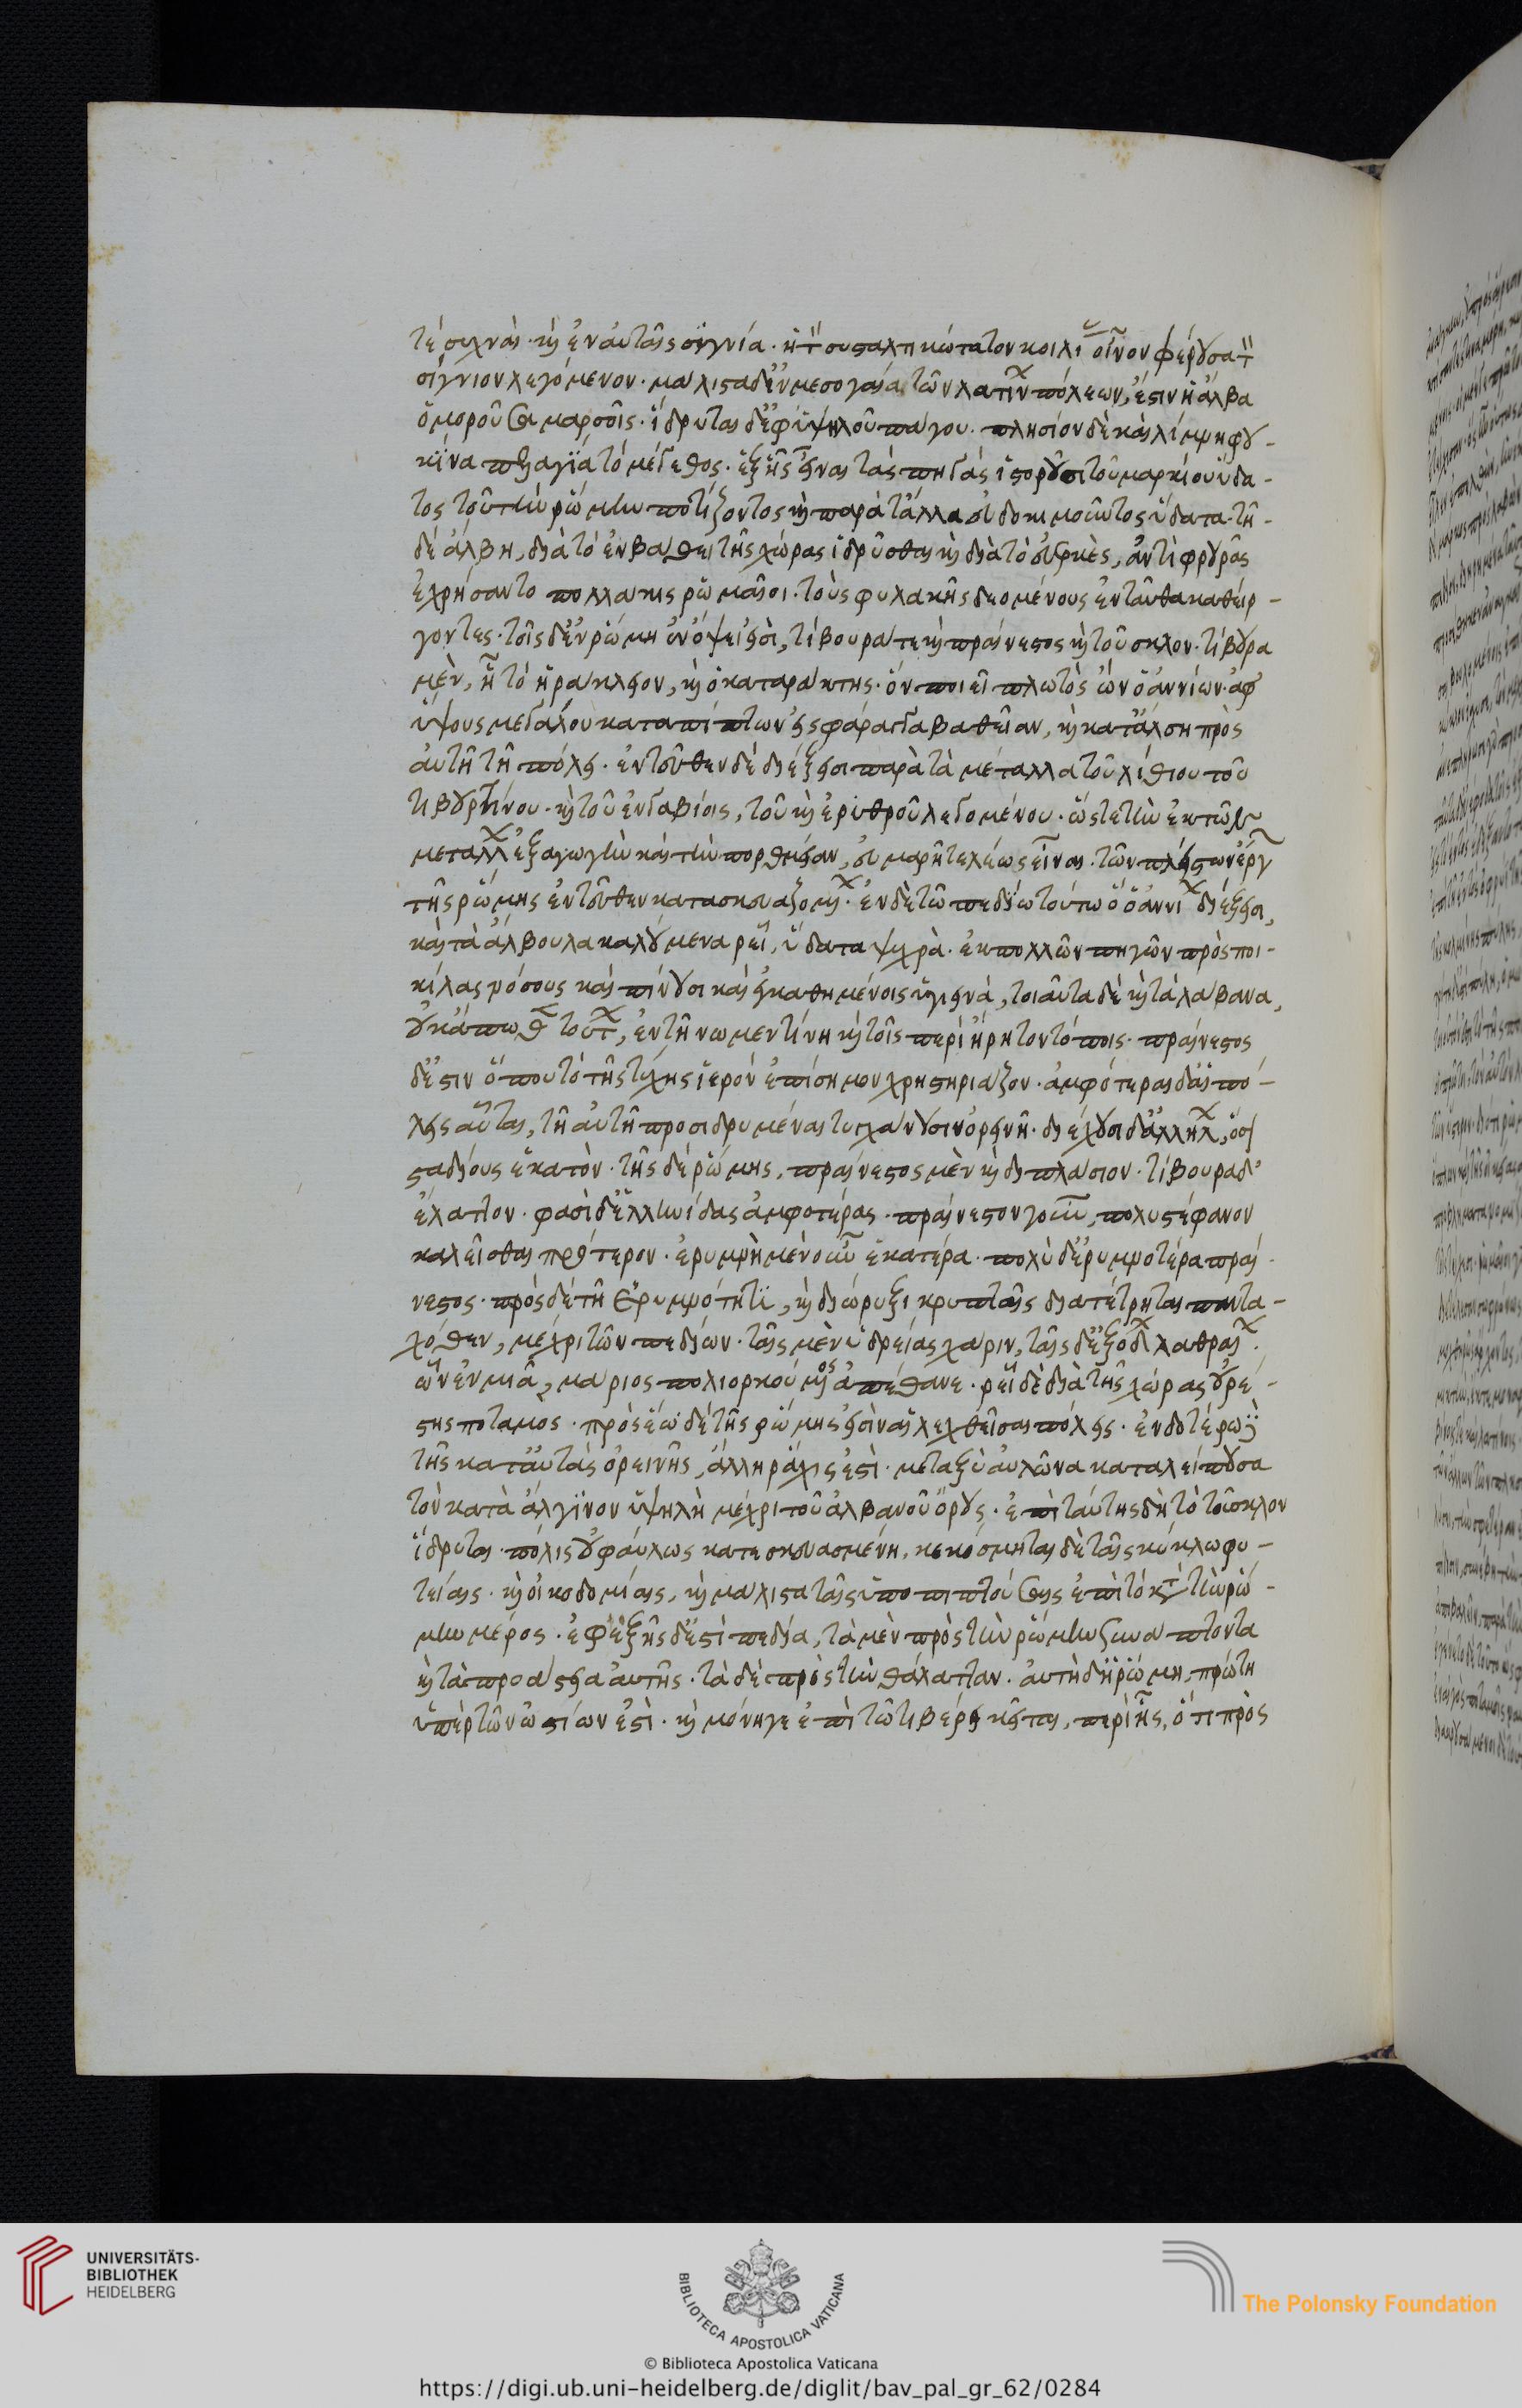 τέ συχναὶ· καὶ ἐν αὐταῖς σιγνία· ἡ τ̈ συσταλτικώτατον κοιλί οἶνον φέρουσα τ̈
σίγνιον λεγόμενον· μάλιστα δ' ἐν μεσογαία τῶν λατίν πόλεων, ἔστιν ἡ ἄλβα
ὁμοροῦσα μαρσοῖς· ἵδρυται δ' ἐφ' ὑψηλοῦ πάγου· πλησίον δὲ καὶ λίμνη φου-
κίνα πελαγία τὸ μέγεθος· ἑξῆς εἶναι τὰς πηγάς ἱστοροῦσι τοῦ μαρκίου ὕδα-
τος τοῦ τὴν ῥώμην ποτίζοντος καὶ παρὰ τἆλλα εὐδοκιμοῦντος ὕδατα· τῇ
δὲ ἄλβη, διὰ τὸ ἐν βάθει τῆς χώρας ἱδρῦσθαι καὶ διὰ τὸ εὐερκὲς, ἀντὶ φρουρᾶς
ἐχρήσαντο πολλάκις ῥωμαῖοι· τοὺς φυλακῆς δεομένους ἐνταῦθα καθείρ-
γοντες· τοῖς δ' ἐν ῥώμη ἐν ὄψει εἰσὶ, τίβουρά τε καὶ πραίνεστος καὶ τοῦσκλον· τίβουρα
μὲν, ᾗ τὸ ἡράκλειον, καὶ ὁ καταράκτης· ὃν ποιεῖ πλωτὸς ὢν ὁ ἀννίων· ἀφ'
ὕψους μεγάλου καταπίπτων εἰς φάραγγα βαθεῖαν, καὶ κατάλση πρὸς
αὐτῇ τῇ πόλει· ἐντεῦθεν δὲ διέξεισι παρὰ τὰ μέταλλα τοῦ λίθιου τοῦ
τιβουρτίνου· καὶ τοῦ ἐν γαβίοις, τοῦ καὶ ἐρυθροῦ λεγομένου· ὥστε τὴν ἐκ τῶν
μετάλλ ἐξαγωγὴν καὶ τὴν πορθμείαν, εὐμαρῆ τελέως εἶναι· τῶν πλείστων ἔργ
τῆς ῥώμης ἐντεῦθεν κατασκευαζομ· ἐν δὲ τῶ πεδίω τούτω ὁ ἀννί διέξεισι,
καὶ τὰ ἄλβουλα καλούμενα ῥεῖ, ὕδατα ψυχρὰ· ἐκ πολλῶν πηγῶν πρὸς ποι-
κίλας νόσους καὶ πίνουσι καὶ ἐγκαθημένοις ὑγιεινά, τοιαῦτα δὲ καὶ τὰ λάβανα,
οὐκ ἄπωθ τούτ, ἐν τῇ νωμεντίνη καὶ τοῖς περὶ ἤρητον τόποις· πραίνεστος
δ' ἐστιν ὅπου τὸ τῆς τύχης ἱερόν ἐπίσημον χρηστηριάζον· ἀμφότεραι δ' αἱ πό-
λεις αὗται, τῇ αὐτῇ προσιδρυμέναι τυγχάνουσιν ὀρεινῇ· διέχουσι δ' ἀλλήλ, ὅσον
σταδίους ἑκατὸν· τῆς δὲ ῥώμης, πραίνεστος μὲν καὶ διπλάσιον· τίβουρα δ'
ἔλαττον· φασὶ δ' ἑλληνίδας ἀμφοτέρας· πραίνεστον γοῦν, πολυστέφανον
καλεῖσθαι πρότερον· ἐρυμνὴ μὲν οὖν ἑκατέρα· πολὺ δ' ἐρυμνοτέρα πραί-
νεστος· πρὸς δὲ τῇ ἐρυμνότητι, καὶ διώρυξι κρυπταῖς διατέτρηται πάντα-
χόθεν, μέχρι τῶν πεδίων· ταῖς μὲν ὑδρείας χάριν, ταῖς δ' ἐξόδ λαθραί·
ὧν ἐν μιᾷ, μάριος πολιορκούμενος ἀπέθανε· ῥεῖ δὲ διὰ τῆς χώρας οὐρέ-
στης ποταμὸς· πρὸς ἕω δὲ τῆς ῥώμης εἰσὶν αἱ λεχθεῖσαι πόλεις· ἐνδοτέρω
τῆς κατ' αὐτὰς ὀρεινῆς, ἄλλη ῥάχις ἐστὶ· μεταξὺ αὐλῶνα καταλείπουσα
τὸν κατὰ ἄλγινον ὑψηλὴ μέχρι τοῦ ἀλβανοῦ ὄρους· ἐπὶ ταύτης δὴ τὸ τοῦσκλον
ἵδρυται πόλις οὐ φαύλως κατεσκευασμένη, κεκόσμηται δὲ ταῖς κύκλω φυ-
τείαις· καὶ οἰκοδομίαις, καὶ μάλιστα ταῖς ὑποπιπτούσαις ἐπὶ τὸ κατὰ τὴν ῥώ-
μην μέρος· ἐφεξῆς δ' ἐστὶ πεδία, τὰ μὲν πρὸς τὴν ῥώμην συνάπτοντα
καὶ τὰ προάστεια αὐτῆς· τὰ δὲ πρὸς τὴν θάλατταν· αὐτὴ δ' ἡ ῥώμη, πρώτη
ὑπὲρ τῶν ὠστίων ἐστὶ· καὶ μόνη γε ἐπὶ τῶ τιβέρει κεῖται, περὶ ἧς, ὅτι πρὸς
UNIVERSITÄTS-
BIBLIOTHEK
HEIDELBERG
BIBLIOTECA APOSTOLICA VATICANA
The Polonsky Foundation
© Biblioteca Apostolica Vaticana
https://digi.ub.uni-heidelberg.de/diglit/bav_pal_gr_62/0284